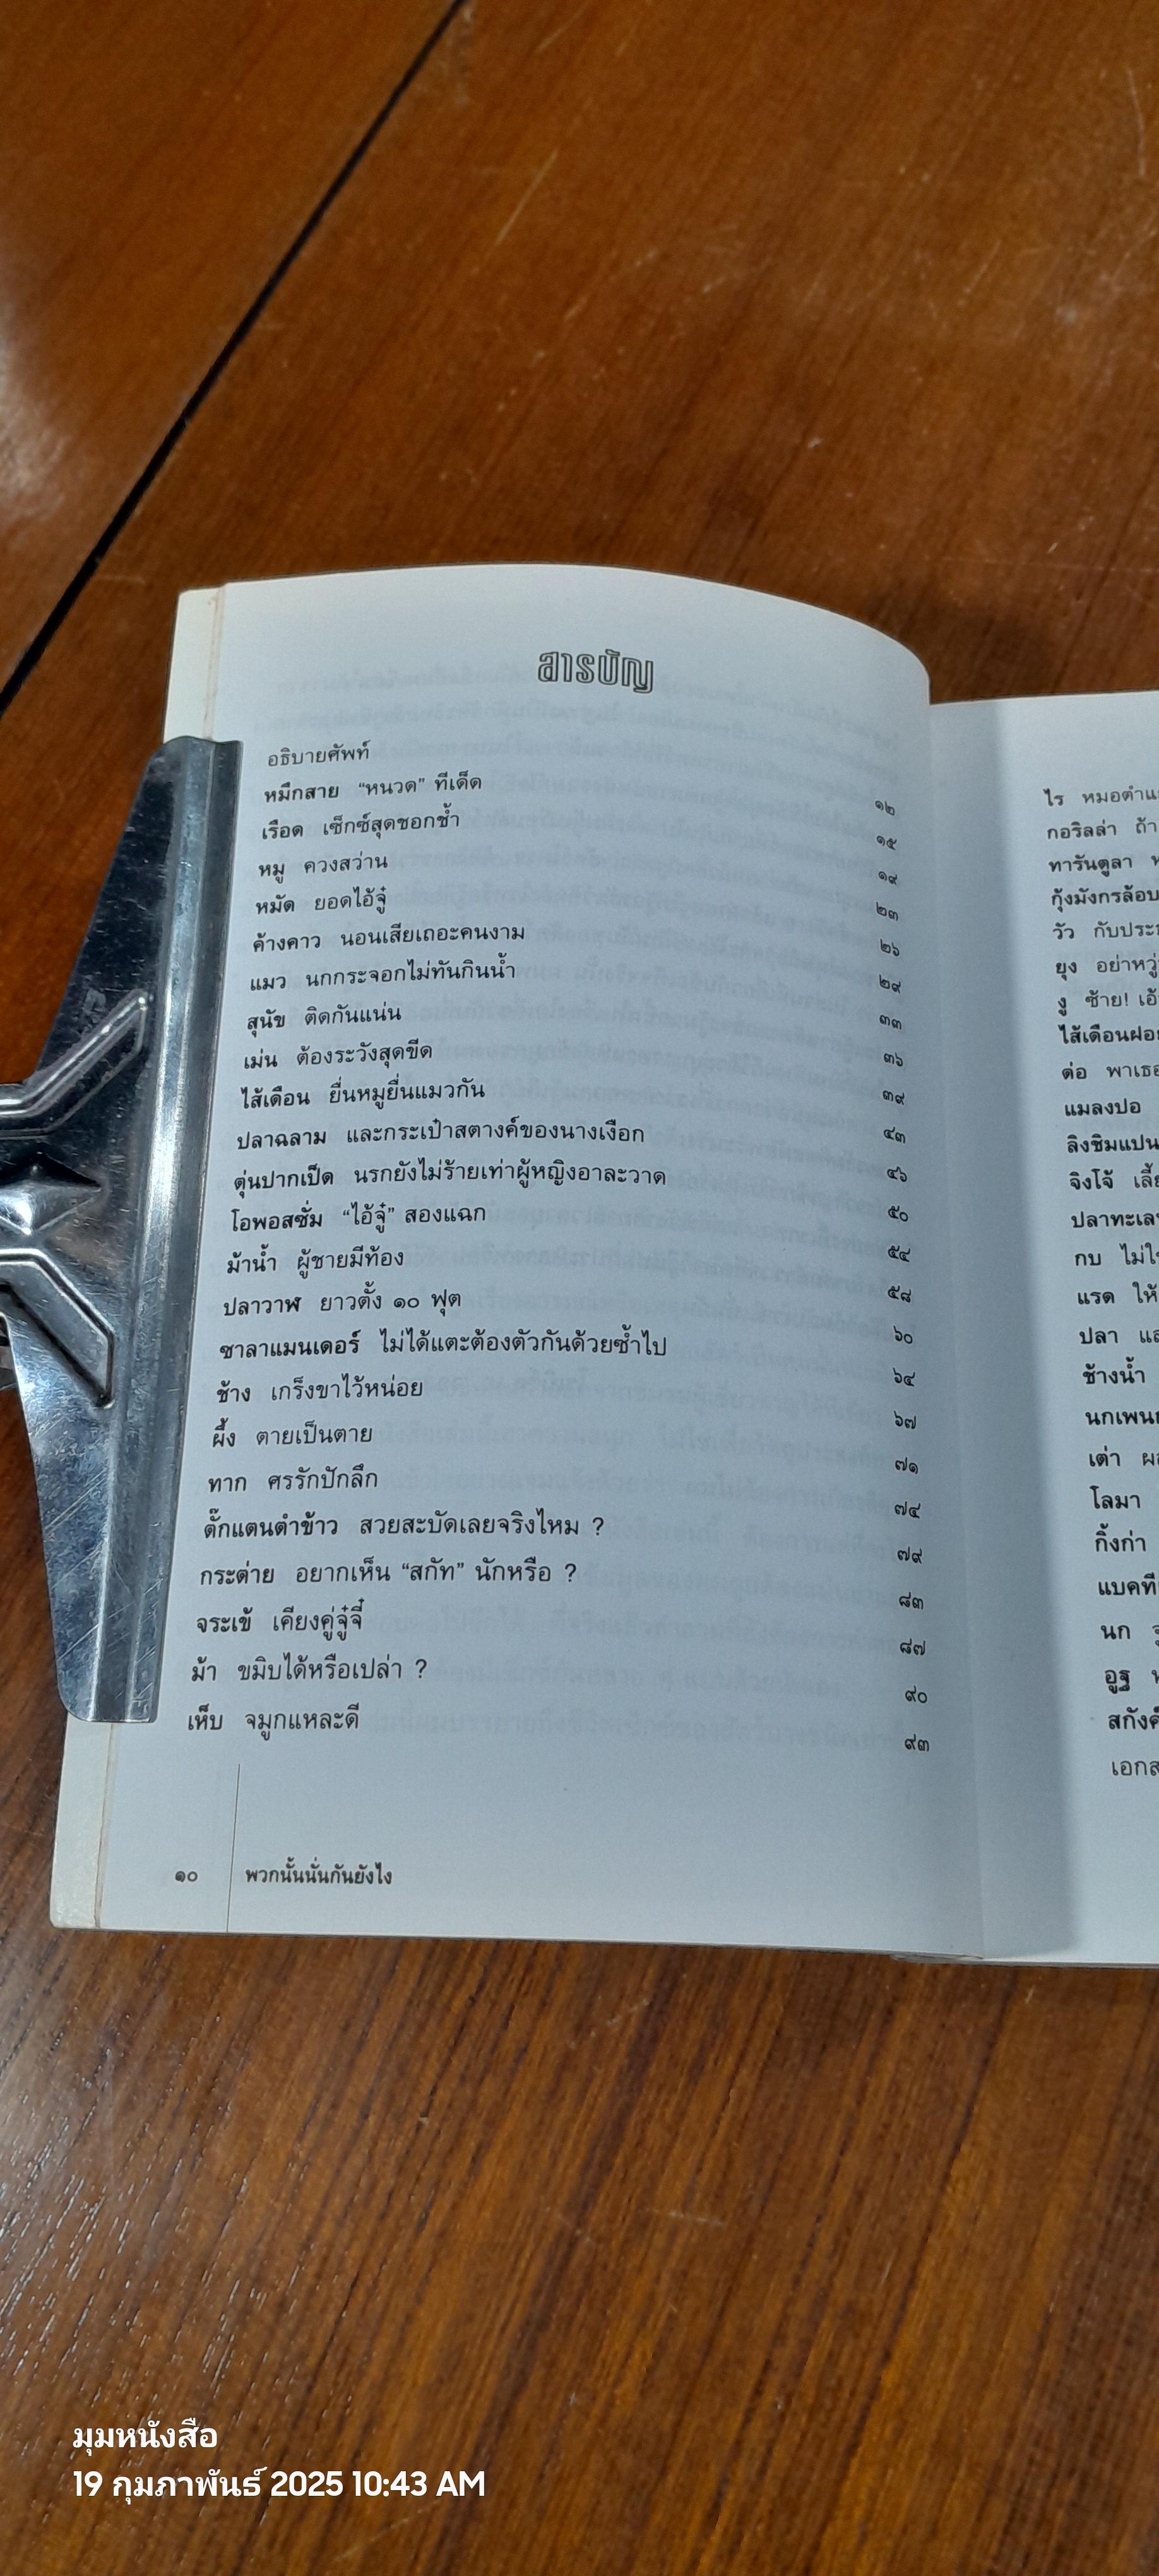 สารบัญ
อธิบายศัพท์ ๑๒
หมึกสาย “หนวด” ทีเด็ด ๑๕
เรือด เซ็กซ์สุดชอกช้ำ ๑๙
หมู ควงสว่าน ๒๓
หมัด ยอดไอ้จู๋ ๒๖
ค้างคาว นอนเสียเถอะคนงาม ๒๙
แมว นกกระจอกไม่ทันกินน้ำ ๓๓
สุนัข ติดกันแน่น ๓๖
เม่น ต้องระวังสุดขีด ๓๙
ไส้เดือน ยื่นหมูยื่นแมวกัน ๔๓
ปลาฉลาม และกระเป๋าสตางค์ของนางเงือก ๔๖
ตุ่นปากเป็ด นรกยังไม่ร้ายเท่าผู้หญิงอาละวาด ๕๐
โอพอสซั่ม “ไอ้จู๋” สองแฉก ๕๔
ม้าน้ำ ผู้ชายมีท้อง ๕๘
ปลาวาฬ ยาวตั้ง ๑๐ ฟุต ๖๐
ซาลาแมนเดอร์ ไม่ได้แตะต้องตัวกันด้วยซ้ำไป ๖๔
ช้าง เกร็งขาไว้หน่อย ๖๗
ผึ้ง ตายเป็นตาย ๗๑
ทาก ศรรักปักลึก ๗๔
ตั๊กแตนตำข้าว สวยสะบัดเลยจริงไหม ? ๗๙
กระต่าย อยากเห็น “สกัท” นักหรือ ? ๘๓
จระเข้ เคียงคู่จู๋จี๋ ๘๗
ม้า ขมิบได้หรือเปล่า ? ๙๐
เห็บ จมูกแหละดี ๙๓
๑๐ พวกนั้นนั่นกันยังไง
ไร หมอตำแย
กอริลล่า ถ้า
ทารันตูลา
กุ้งมังกรล้อบ
วัว กับประ
ยุง อย่าหวู่
งู ซ้าย! เอ้
ไส้เดือนฝอย
ต่อ พาเธอ
แมลงปอ
ลิงชิมแปน
จิงโจ้ เลี้ย
ปลาทะเล
กบ ไม่ใ
แรด ให้
ปลา แล
ช้างน้ำ
นกเพน
เต่า ผ
โลมา
กิ้งก่า
แบคที
นก
อูฐ
สกังค์
เอกส
มุมหนังสือ
19 กุมภาพันธ์ 2025 10:43 AM